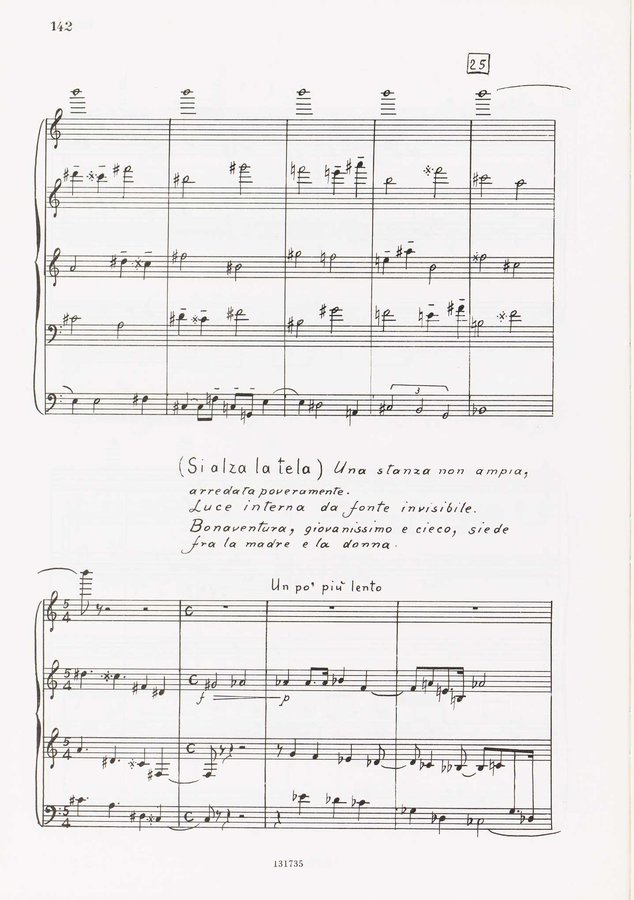 142
25
3
(Si alza la tela) Una stanza non ampia,
arredata poveramente.
Luce interna da fonte invisibile.
Bonaventura, giovanissimo e cieco, siede
fra la madre e la donna.
Un po' più lento
5 4 C
5 4 C
f p
5 4 C
5 4 C
131735